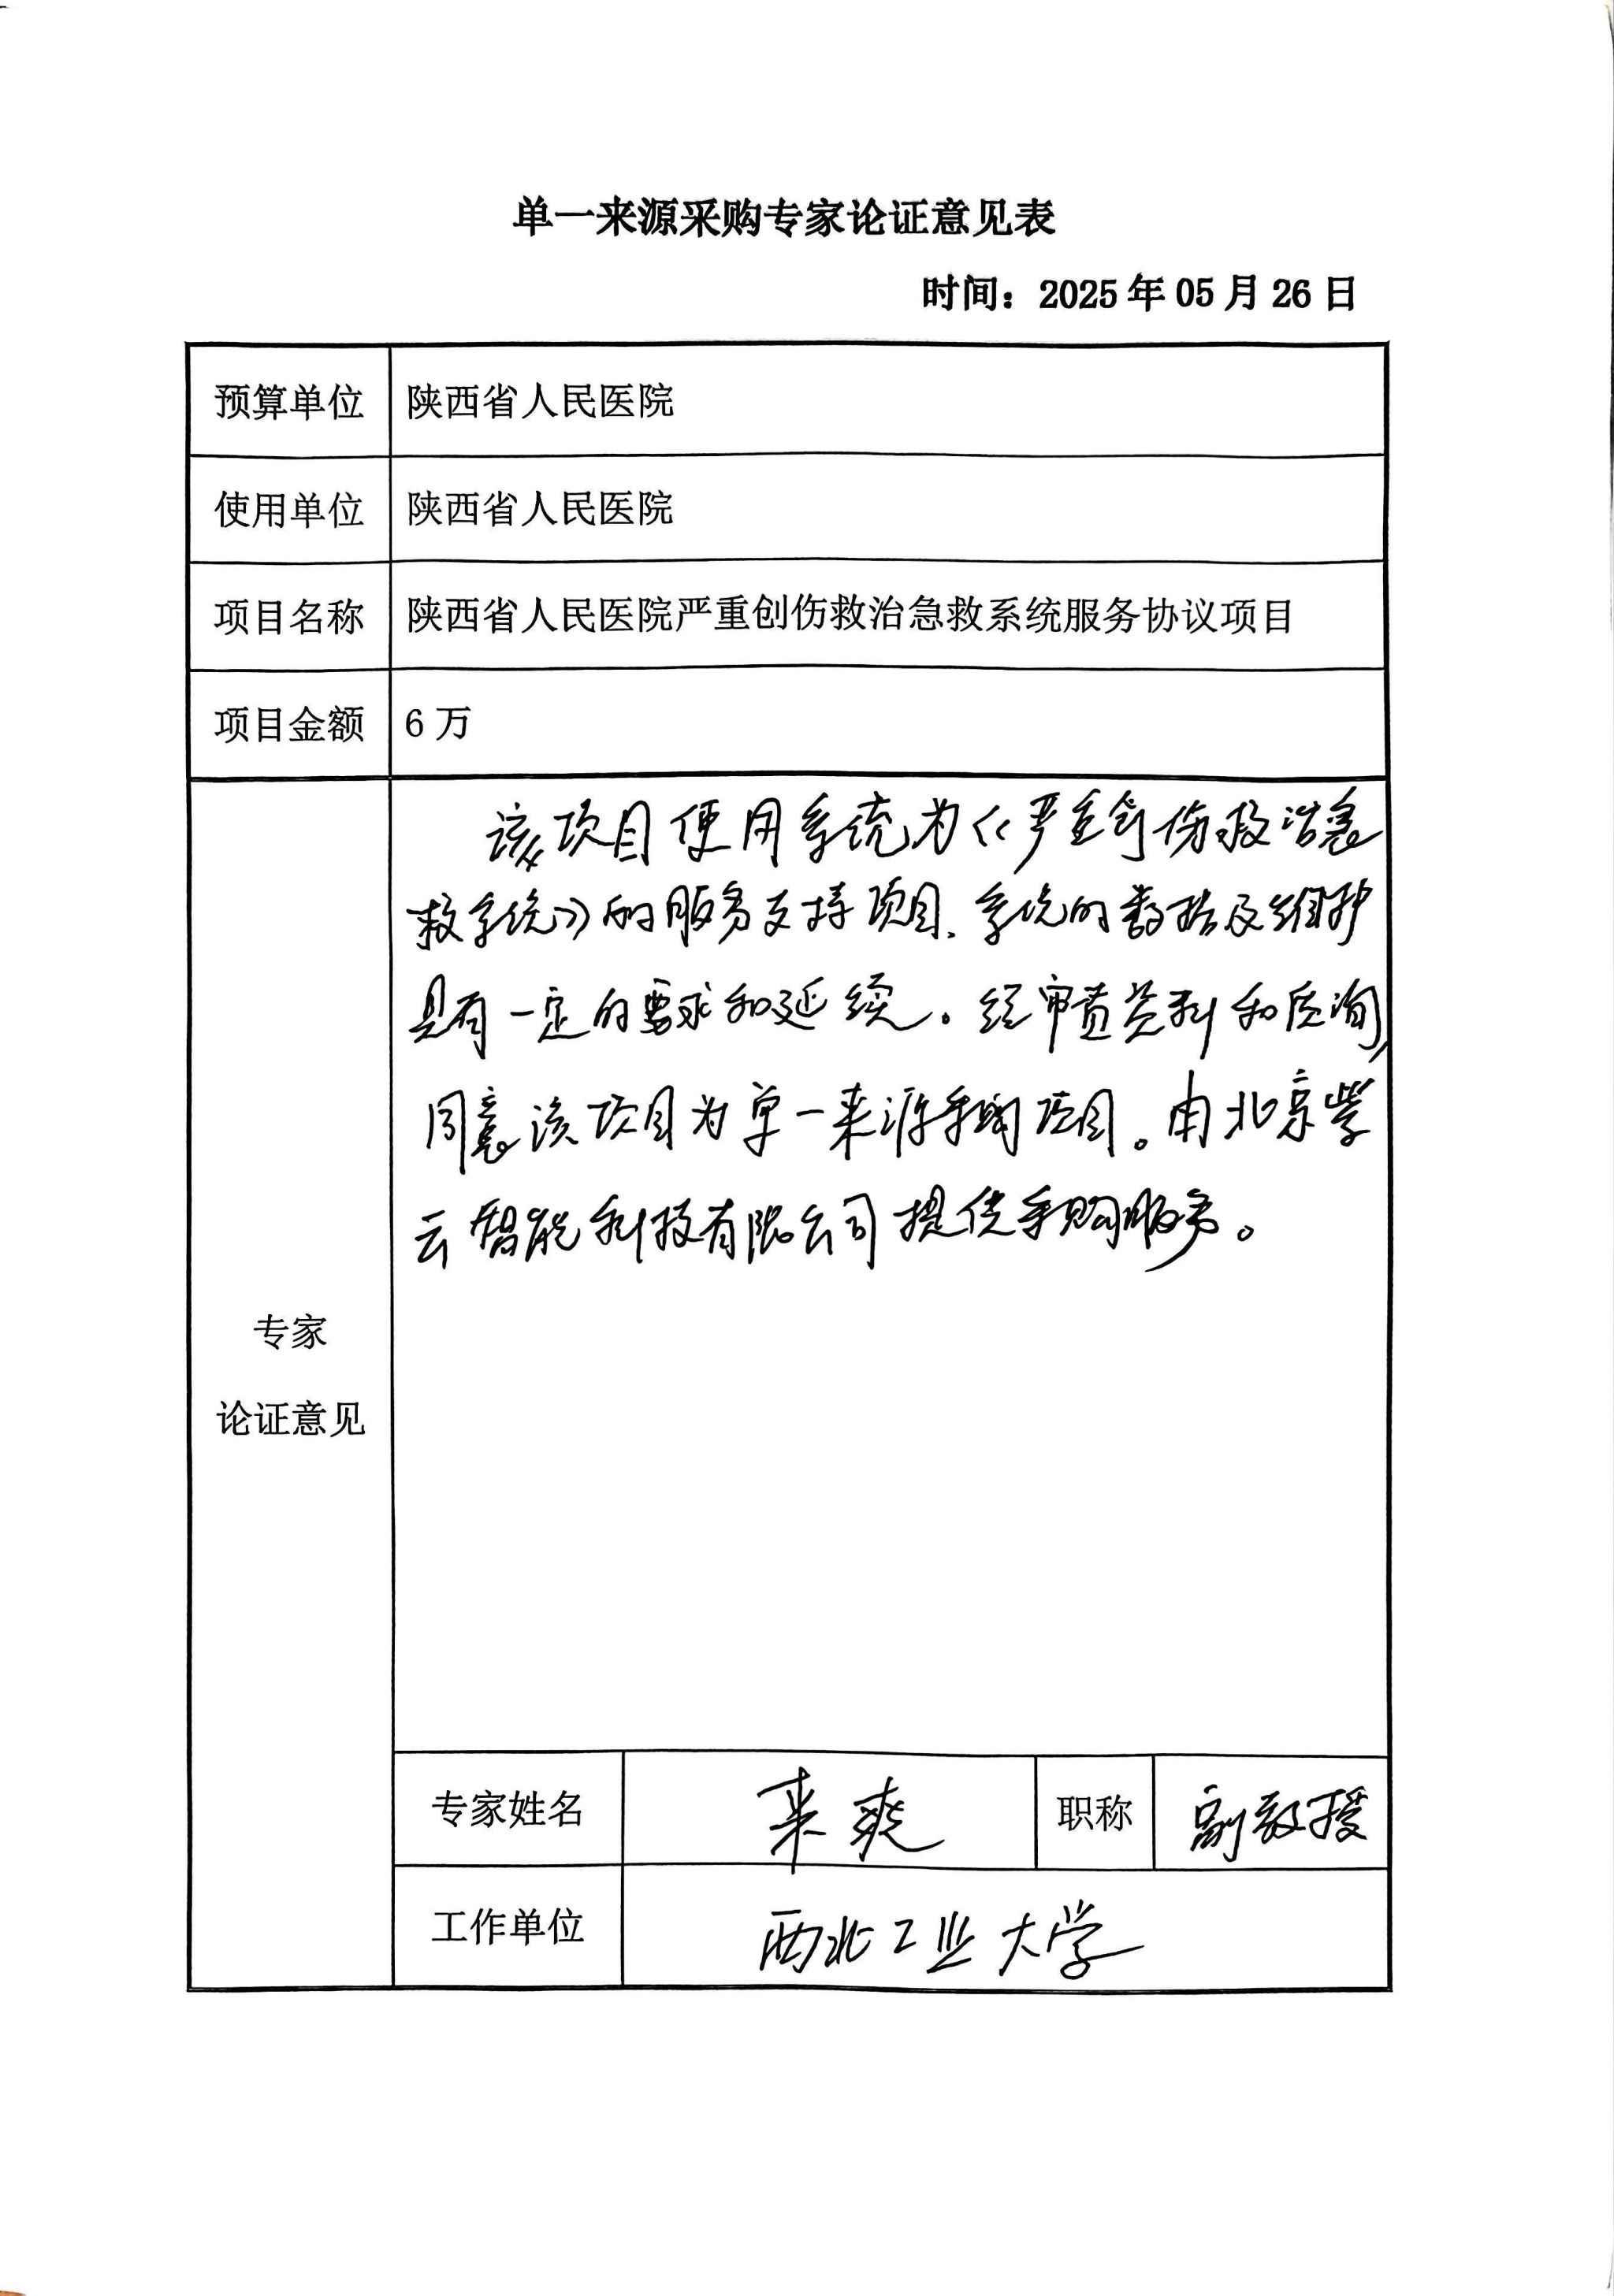 单一来源采购专家论证意见表
时间：2025年05月26日
预算单位 陕西省人民医院
使用单位 陕西省人民医院
项目名称 陕西省人民医院严重创伤救治急救系统服务协议项目
项目金额 6万
该项目使用系统为《严重创伤救治急
救系统》的服务支持项目、系统的数据及维护
具有一定的要求和延续。经审查资料和质询，
同意该项目为单一来源采购项目。由北京紫
云智能科技有限公司提供采购服务。
专家
论证意见
专家姓名 来爽 职称 副教授
工作单位 西北工业大学